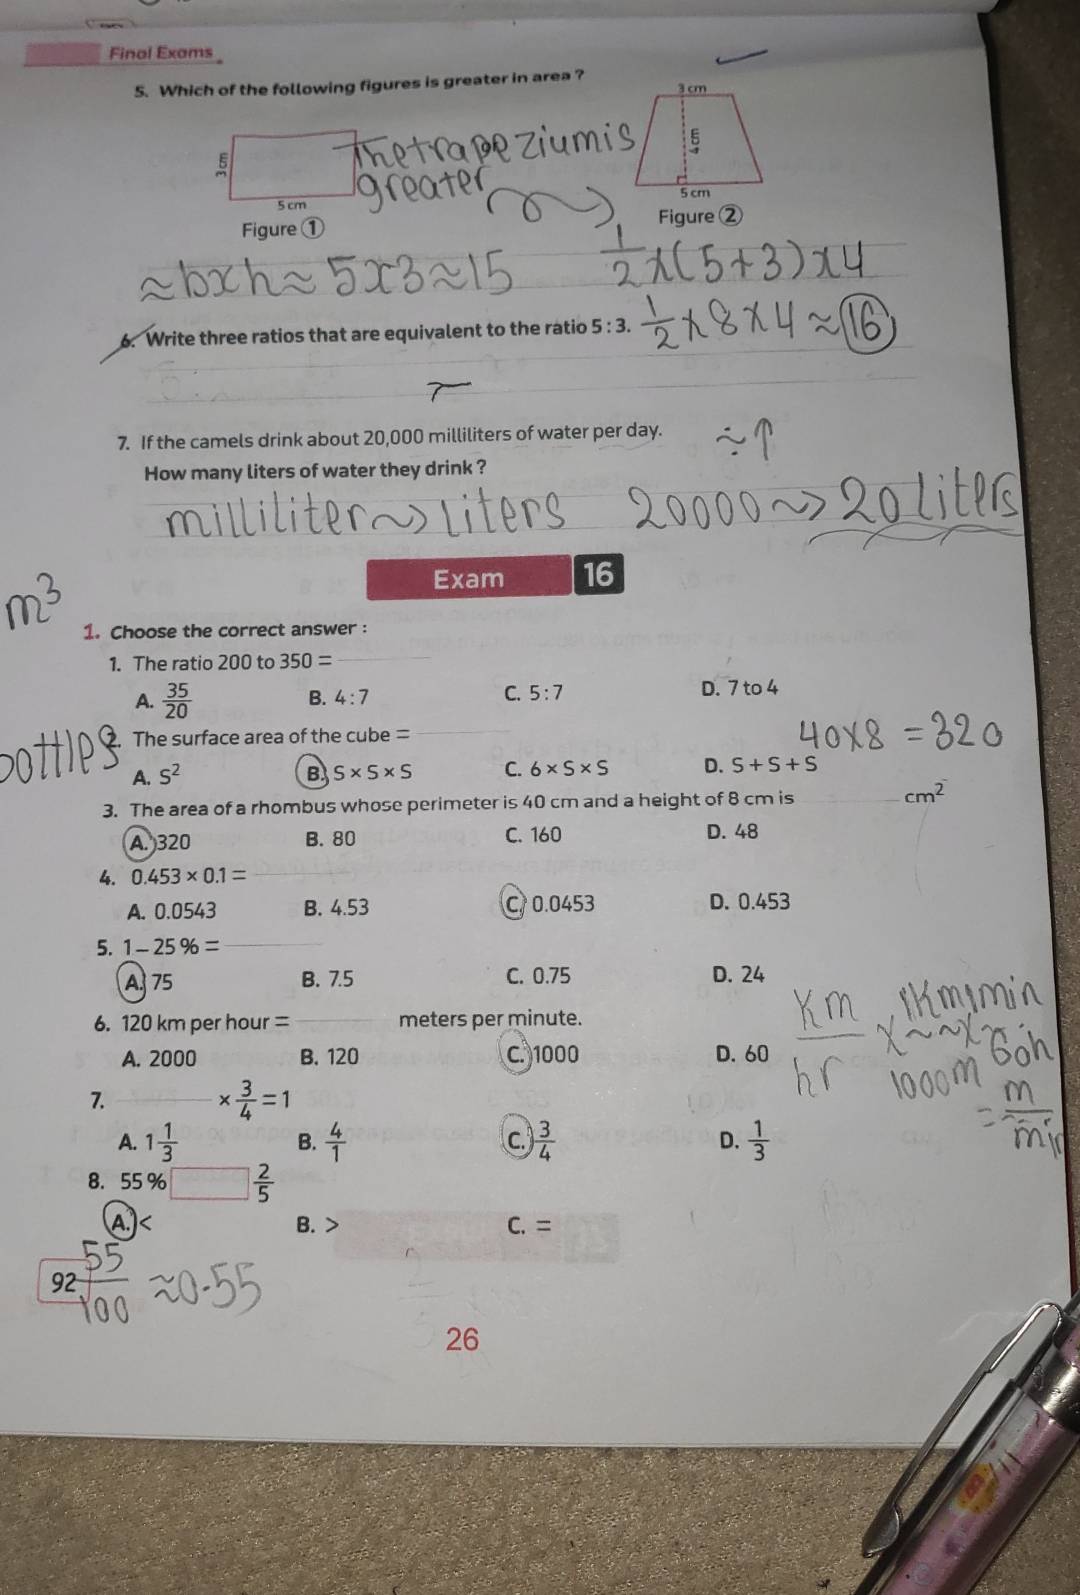 Final Exams
5. Which of the following figures is greater in area ?
3 cm
5 cm
Figure ①
The trapezium is
greater
3 cm
4 cm
5 cm
Figure ②
≈ b x h ≈ 5 x 3 ≈ 15
1/2 x (5 + 3) x 4
6. Write three ratios that are equivalent to the ratio 5 : 3.
1/2 x 8 x 4 ≈ 16
7. If the camels drink about 20,000 milliliters of water per day.
÷ ↑
How many liters of water they drink ?
milliliter ~> liters 20000 ~> 20 liters
Exam 16
m³
1. Choose the correct answer :
1. The ratio 200 to 350 =
A. 35/20 B. 4 : 7 C. 5 : 7 D. 7 to 4
bottles
2. The surface area of the cube =
40 x 8 = 320
A. S² B. S × S × S C. 6 × S × S D. S + S + S
3. The area of a rhombus whose perimeter is 40 cm and a height of 8 cm is cm²
A. 320 B. 80 C. 160 D. 48
4. 0.453 × 0.1 =
A. 0.0543 B. 4.53 C. 0.0453 D. 0.453
5. 1 – 25 % =
A. 75 B. 7.5 C. 0.75 D. 24
6. 120 km per hour = meters per minute.
A. 2000 B. 120 C. 1000 D. 60
Km/hr
1000m
= m/min
7. × 3/4 = 1
A. 1 1/3 B. 4/1 C. 3/4 D. 1/3
8. 55 % 2/5
A. < B. > C. =
92
55/100 ≈ 0.55
26